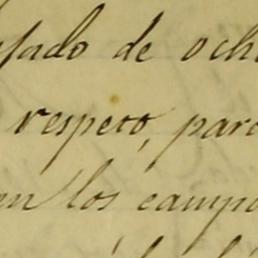 sado de och
respeto, para
en los campo